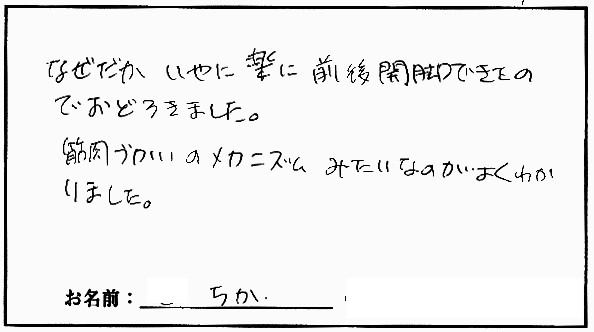 なぜだか いやに 楽に 前後開脚できたの
でおどろきました。
筋肉づかいのメカニズム みたいなのがよくわか
りました。
お名前： ちか